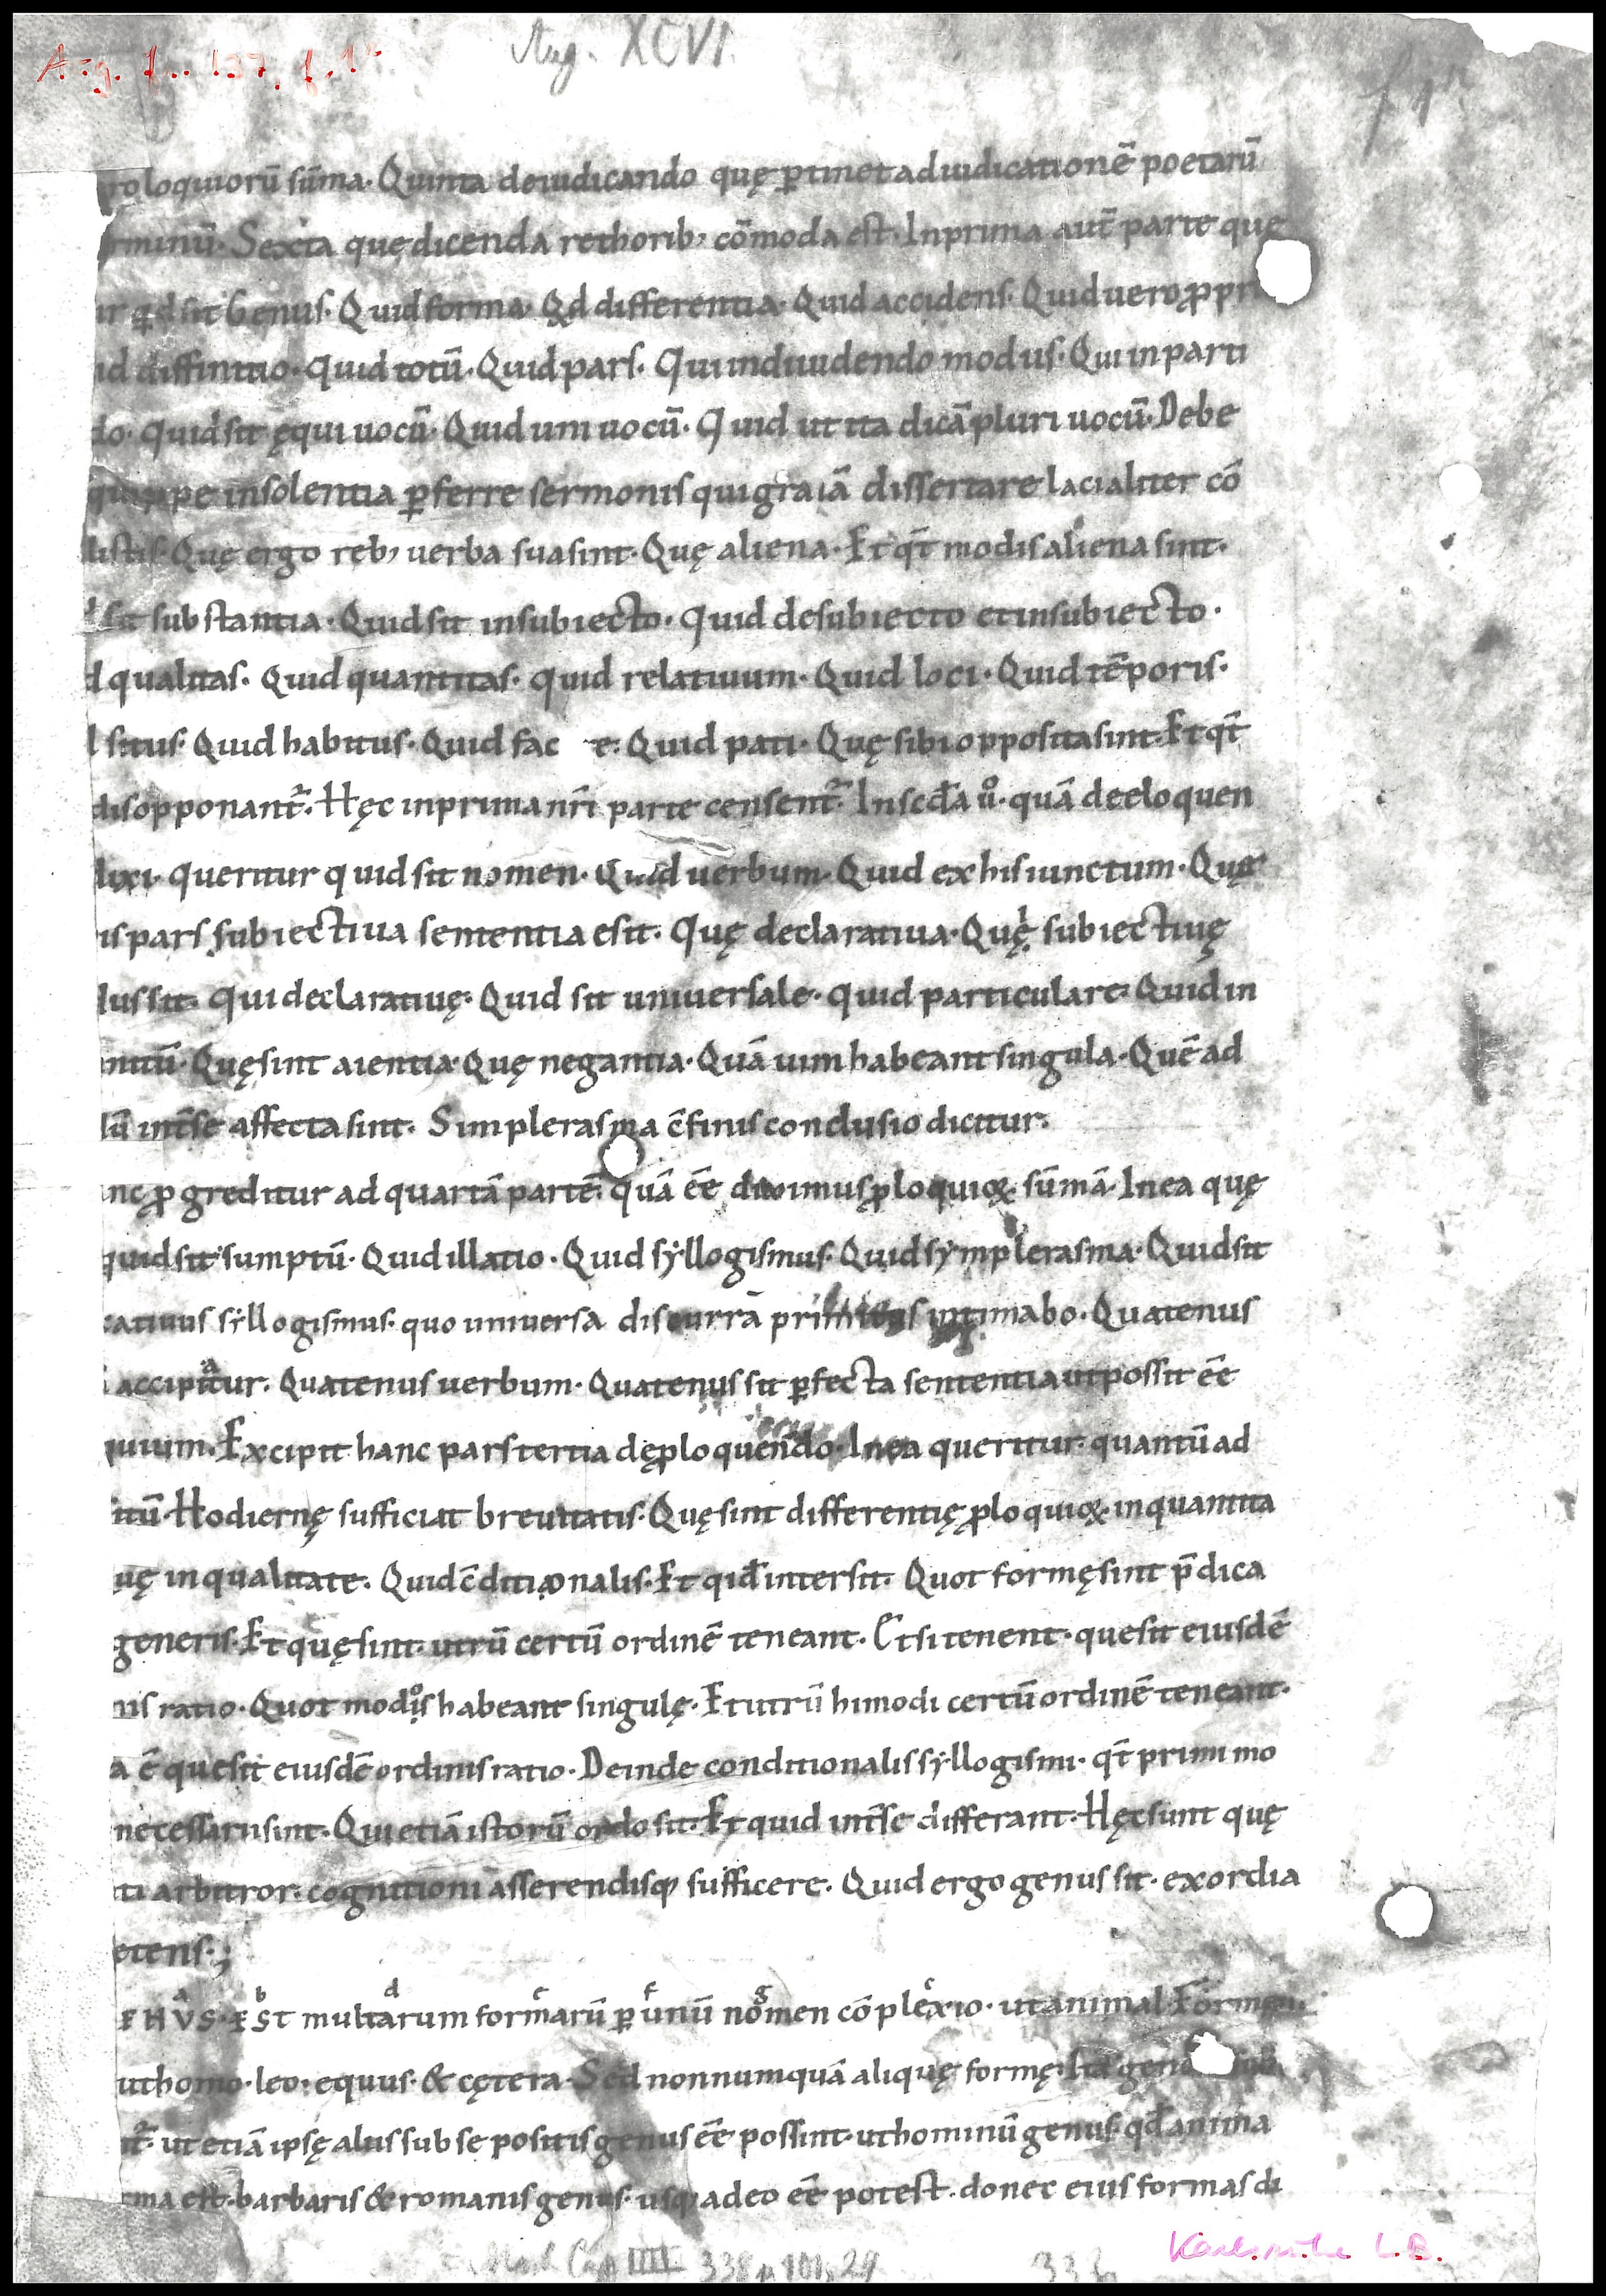 Aug. XCVI.
f 1r
roloquiorū sūma· Quinta deiudicando quę ꝑtinet ad iudicationē poetarū
rminū· Sexta quę dicenda rethorib; cōmoda est· Inprima aut̄ parte quę
ur qd sit Genus· Quid forma· Qd differentia· Quid accidens· Quid uero ꝓpri
id diffinitio· Quid totū· Quid pars· Qui indiuidendo modus· Qui inparti
do· Quid sit ęquiuocū· Quid uniuocū· Quid ut ita dicā pluriuocū· Debe
quippe insolentia ꝑferre sermonis qui graiā dissertare lacialiter cō
listis· Quę ergo reb; uerba sua sint· Quę aliena· Et qt̄ modis aliena sint·
sit substantia· Quid sit insubiecto· Quid desubiecto et insubiecto·
d qualitas· Quid quantitas· quid relatiuum· Quid loci· Quid tēporis·
l situs· Quid habitus· Quid fac e· Quid pati· Quę sibi opposita sint· Et qt̄
dis opponant̄· Hęc inprima nr̄i parte censent̄· Inscd̄a uº· quā deeloquen
lixi· queritur quid sit nomen· Quid uerbum· Quid ex his iunctum· Quę
is pars subiectiua sententia e sit· Quę declaratiua· Quę subiectiuę
lus sit· Qui declaratiuę· Quid sit uniuersale· quid particulare· Quid in
nitū· Quę sint aientia· Quę negantia· Quā uim habeant singula· Quē ad
lū int̄se affecta sint· Simplerasma ē finis conclusio dicitur·
nc ꝓgreditur ad quartā partē· quā ēē diximus ꝓloquioꝝ sūmā· Inea quę
quid sit sumptū· Quid illatio· Quid syllogismus· Quid symplerasma· Quid sit
catiuus syllogismus· quo uniuersa discurrā intimabo· Quatenus
accipitur· Quatenus uerbum· Quatenus sit ꝑfecta sententia ut possit ēē
quium· Excipit hanc pars tertia dęꝓloquendo· Inea queritur· quantū ad
itū· Hodiernę sufficiat breuitatis· Quę sint differentię ꝓloquioꝝ· inquantita
uę inqualitate· Quid c̄ditionalis· Et qid intersit· Quot formę sint p̄dica
generis· Et quę sint· utrū certū ordinē teneant· Et si tenent· que sit eiusdē
nis ratio· Quot modos habeant singulę· Et utrū hi modi certū ordinē teneant·
a ē que sit eiusdē ordinis ratio· Deinde conditionalis syllogismi· qt̄ primi mo
necessarii sint· Qui etiā istorū ordo sit· Et quid int̄se differant· Hęc sunt quę
ti arbitror· cognitioni asserendisq; sufficere· Quid ergo genus sit· exordia
otens·;
ENUS· EST multarum formarū ꝑ unū nomen cōplexio· ut animal· Formę
ut homo· leo· equus· & cętera· Sed nonnumquā aliquę formę· Ita
nt̄· ut etiā ipsę aliis sub se positis genus ēē possint· ut hominū genus· qd̄ anima
rma est· barbaris & romanis genus· usq; adeo ēē potest· donec eius formas di
IIII 338 p 101, 24
Karlsruhe L.B.